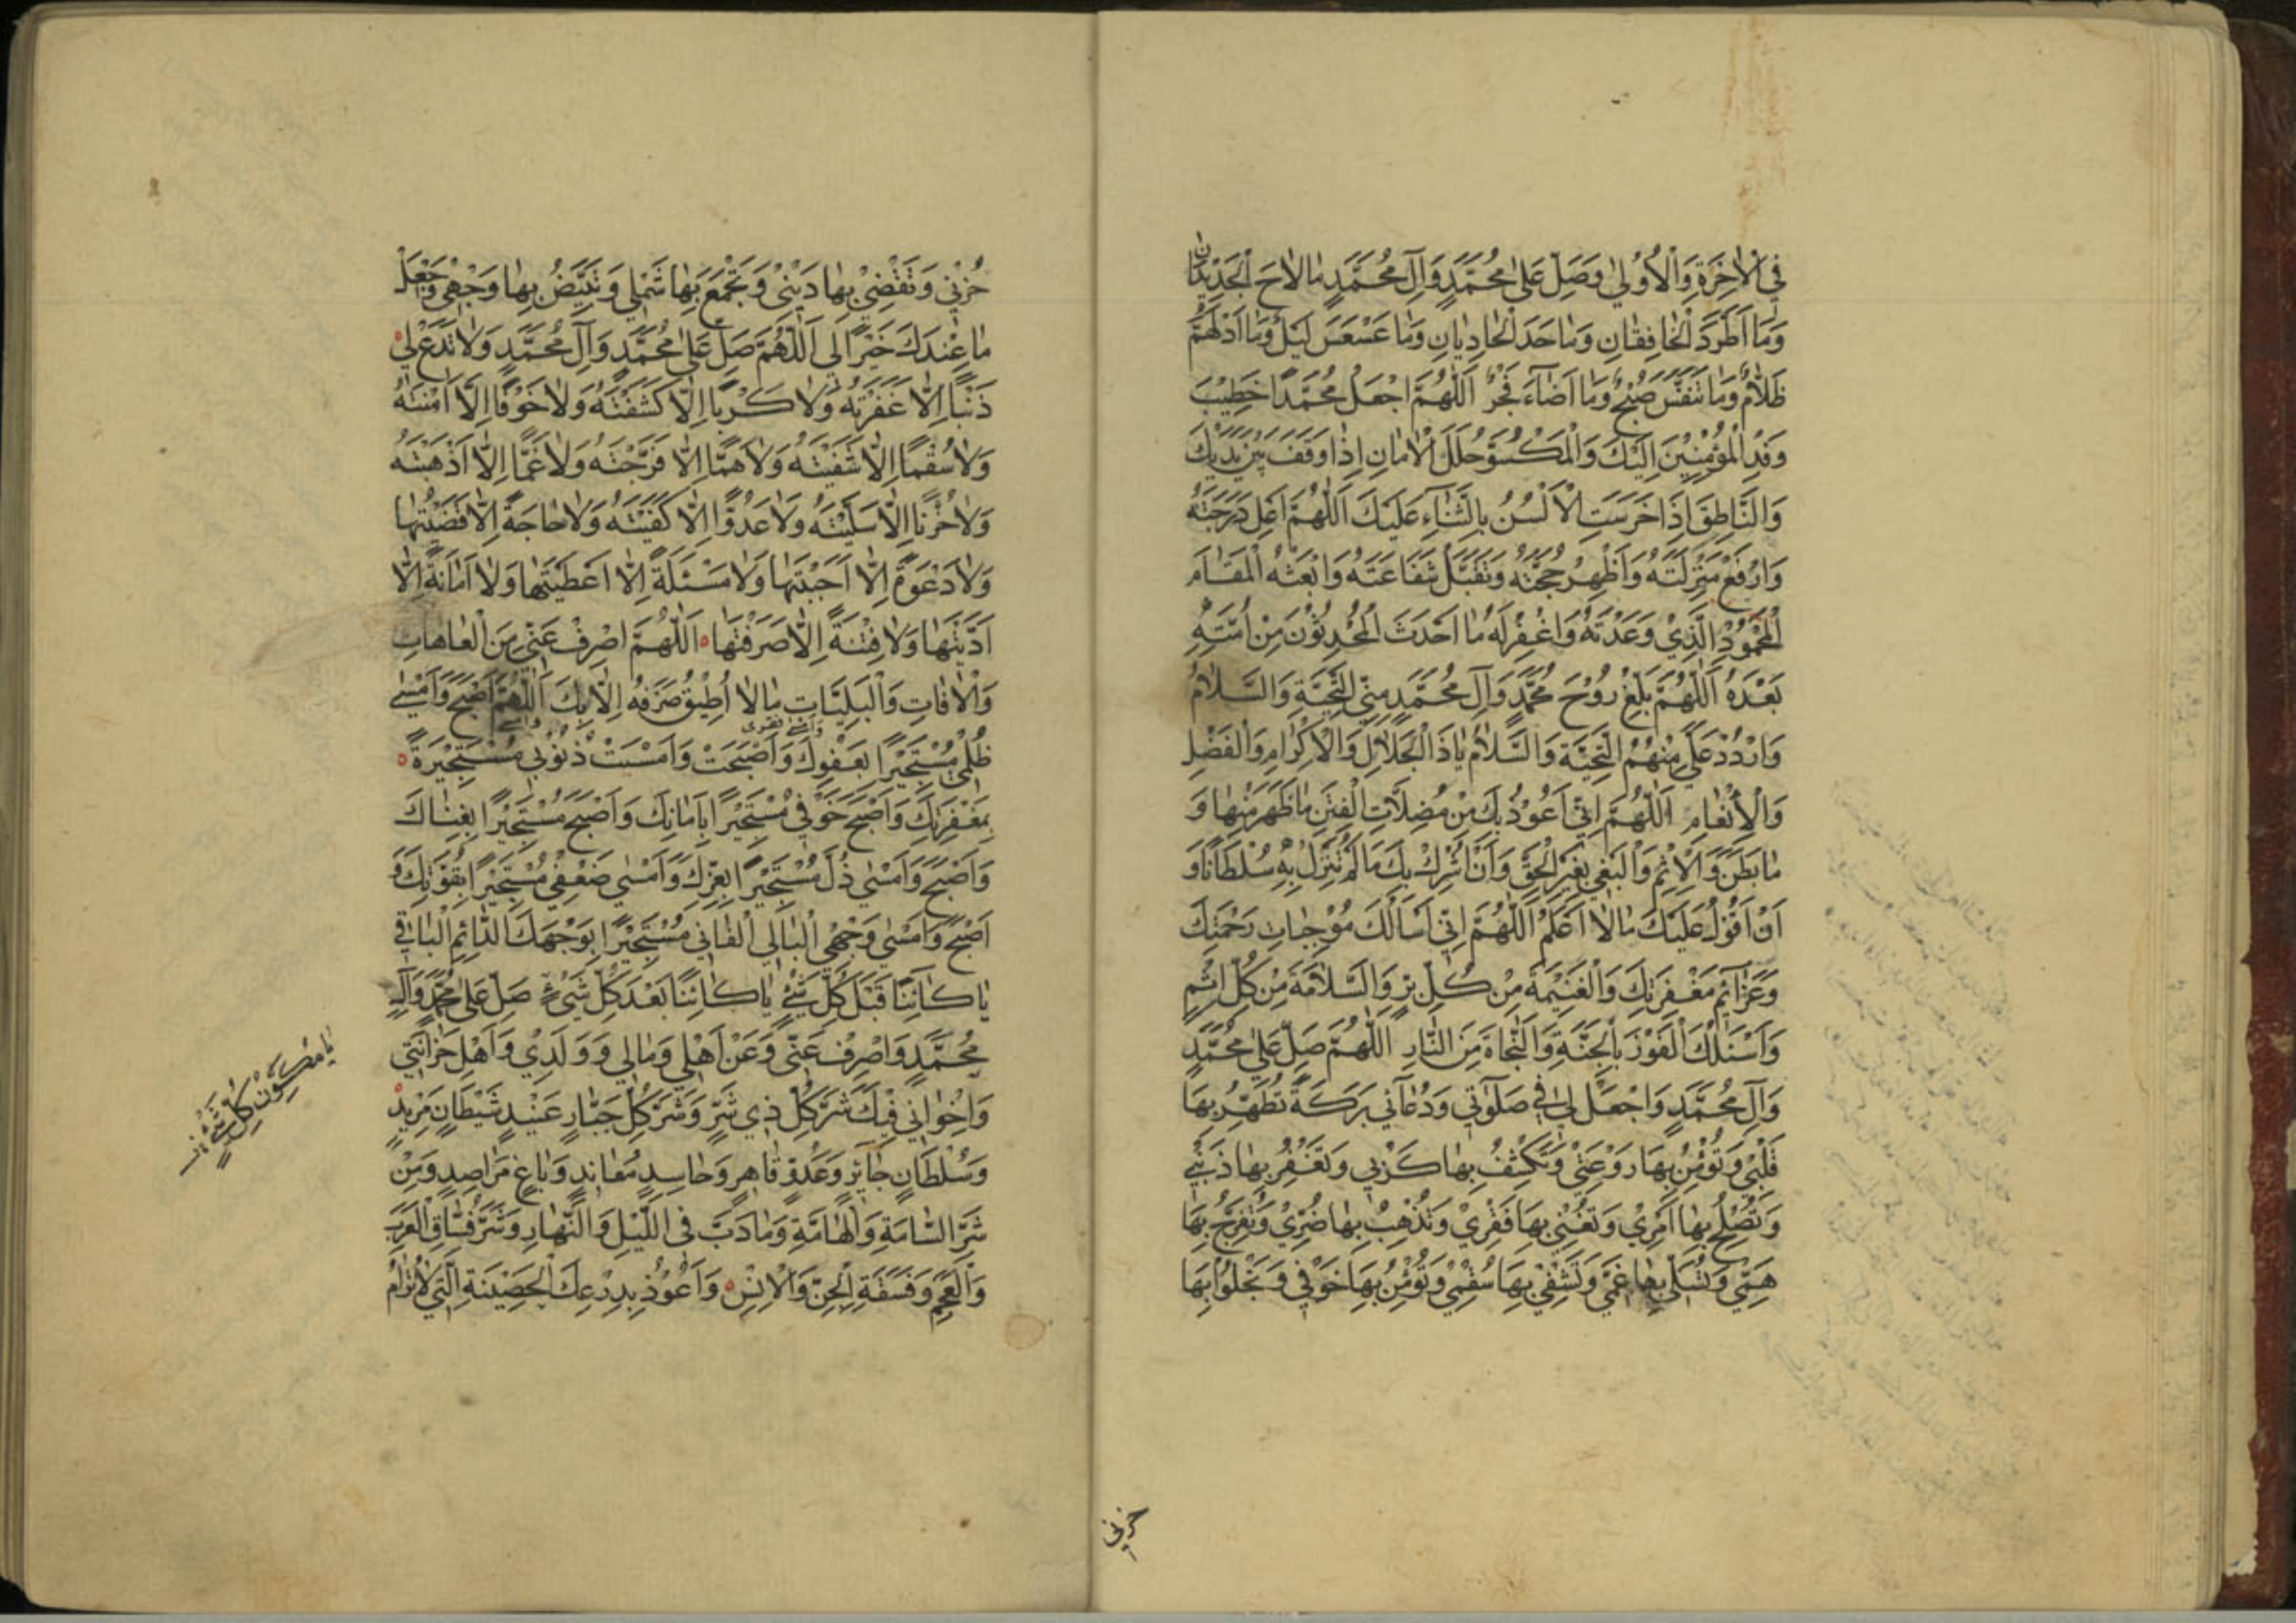 فِي الْاٰخِرَةِ وَالْاُوْلٰي وَصَلِّ عَلٰي مُحَمَّدٍ وَآلِ مُحَمَّدٍ مٰا لٰاحَ الْجَدِيْدٰانِ
وَمٰا اَطْرَدَ الْخٰافِقٰانِ وَمٰا حَدَ الْحٰادِيٰانِ وَمٰا عَسْعَسَ لَيْلٌ وَمٰا ادْلَهَمَّ
ظَلٰامٌ وَمٰا تَنَفَّسَ صُبْحٌ وَمٰا اَضٰآءَ فَجْرٌ اَللّٰهُمَّ اجْعَلْ مُحَمَّدًا خَطِيْبَ
وَفْدِ الْمُؤْمِنِيْنَ اِلَيْكَ وَالْمَكْسُوَّ حُلَلَ الْاَمٰانِ اِذٰا وَقَفَ بَيْنَ يَدَيْكَ
وَالنَّاطِقَ اِذَا خَرَسَتِ الْاَلْسُنُ بِالثَّنٰآءِ عَلَيْكَ اَللّٰهُمَّ اَعْلِ دَرَجَتَهُ
وَارْفَعْ مَنْزِلَتَهُ وَاَظْهِرْ حُجَّتَهُ وَتَقَبَّلْ شَفَاعَتَهُ وَابْعَثْهُ الْمَقَامَ
الْمَحْمُوْدَ الَّذِيْ وَعَدْتَهُ وَاغْفِرْ لَهُ مٰا اَحْدَثَ الْمُحْدِثُوْنَ مِنْ اُمَّتِهِ
بَعْدَهُ اَللّٰهُمَّ بَلِّغْ رُوْحَ مُحَمَّدٍ وَآلِ مُحَمَّدٍ مِنِّي التَّحِيَّةَ وَالسَّلٰامُ
وَارْدُدْ عَلَيَّ مِنْهُمُ التَّحِيَّةَ وَالسَّلٰامُ يٰا ذَا الْجَلٰالِ وَالْاِكْرٰامِ وَالْفَضْلِ
وَالْاِنْعٰامِ اَللّٰهُمَّ اِنِّي اَعُوْذُ بِكَ مِنْ مُضِلّٰاتِ الْفِتَنِ مٰا ظَهَرَ مِنْهٰا وَ
مٰا بَطَنَ وَالْاِثْمِ وَالْبَغْيِ بِغَيْرِ الْحَقِّ وَاَنْ اُشْرِكَ بِكَ مَا لَمْ تُنَزِّلْ بِهِ سُلْطَانًا وَ
اَنْ اَقُوْلَ عَلَيْكَ مٰا لٰا اَعْلَمُ اَللّٰهُمَّ اِنِّي اَسْاَلُكَ مُوْجِبٰاتِ رَحْمَتِكَ
وَعَزٰآئِمَ مَغْفِرَتِكَ وَالْغَنِيْمَةَ مِنْ كُلِّ بِرٍّ وَالسَّلٰامَةَ مِنْ كُلِّ اِثْمٍ
وَاَسْئَلُكَ الْفَوْزَ بِالْجَنَّةِ وَالنَّجٰاةَ مِنَ النّٰارِ اَللّٰهُمَّ صَلِّ عَلٰي مُحَمَّدٍ
وَآلِ مُحَمَّدٍ وَاجْعَلْ لِي فِي صَلَوٰتِي وَدُعٰآئِي بَرَكَةً تُطَهِّرُ بِهَا
قَلْبِي وَتُؤْمِنُ بِهَا رَوْعَتِيْ وَتَكْشِفُ بِهٰا كَرْبِي وَتَغْفِرُ بِهٰا ذَنْبِيْ
وَتُصْلِحُ بِهٰا اَمْرِيْ وَتُغْنِيْ بِهَا فَقْرِيْ وَتُذْهِبُ بِهٰا ضُرِّيْ وَتُفَرِّجُ بِهَا
هَمِّي وَتُسَلِّي بِهٰا غَمِّيْ وَتَشْفِيْ بِهٰا سُقْمِيْ وَتُؤْمِنُ بِهَا خَوْفِي وَتَجْلُوْا بِهَا
حزني
حُزْنِي وَتَقْضِيْ بِهٰا دَيْنِيْ وَتَجْمَعُ بِهٰا شَمْلِي وَتُبَيِّضُ بِهٰا وَجْهِيْ وَاجْعَلْ
مٰا عِنْدَكَ خَيْرًا لِي اَللّٰهُمَّ صَلِّ عَلٰي مُحَمَّدٍ وَآلِ مُحَمَّدٍ وَلٰا تَدَعْ لِيْ
ذَنْبًا اِلّٰا غَفَرْتَهُ وَلٰا كَرْبًا اِلّٰا كَشَفْتَهُ وَلٰا خَوْفًا اِلّٰا اٰمَنْتَهُ
وَلٰا سُقْمًا اِلّٰا شَفَيْتَهُ وَلٰا هَمًّا اِلّٰا فَرَّجْتَهُ وَلٰا غَمًّا اِلّٰا اَذْهَبْتَهُ
وَلٰا حُزْنًا اِلّٰا سَلَّيْتَهُ وَلٰا عَدُوًّا اِلّٰا كَفَيْتَهُ وَلٰا حٰاجَةً اِلّٰا قَضَيْتَهٰا
وَلٰا دَعْوَةً اِلّٰا اَجَبْتَهٰا وَلٰا مَسْئَلَةً اِلّٰا اَعْطَيْتَهٰا وَلٰا اَمٰانَةً اِلّٰا
اَدَّيْتَهٰا وَلٰا فِتْنَةً اِلّٰا صَرَفْتَهٰا اَللّٰهُمَّ اصْرِفْ عَنِّي مِنَ الْعٰاهٰاتِ
وَالْاٰفٰاتِ وَالْبَلِيّٰاتِ مٰا لٰا اُطِيْقُ صَرْفَهُ اِلّٰا بِكَ اَللّٰهُمَّ اَصْبَحَ وَاَمْسٰي
ظُلْمِيْ مُسْتَجِيْرًا بِعَفْوِكَ وَاَصْبَحَتْ وَاَمْسَتْ ذُنُوْبِي مُسْتَجِيْرَةً
بِمَغْفِرَتِكَ وَاَصْبَحَ خَوْفِي مُسْتَجِيْرًا بِاَمٰانِكَ وَاَصْبَحَ مُسْتَجِيْرًا بِغِنٰاكَ
وَاَصْبَحَ وَاَمْسٰي ذُلِّي مُسْتَجِيْرًا بِعِزِّكَ وَاَمْسٰي ضَعْفِيْ مُسْتَجِيْرًا بِقُوَّتِكَ وَ
اَصْبَحَ وَاَمْسٰي وَجْهِيَ الْبٰالِي الْفٰانِي مُسْتَجِيْرًا بِوَجْهِكَ الدّٰائِمِ الْبٰاقِي
يٰا كٰائِنًا قَبْلَ كُلِّ شَيْءٍ يٰا كٰائِنًا بَعْدَ كُلِّ شَيْءٍ صَلِّ عَلٰي مُحَمَّدٍ وَآلِ
مُحَمَّدٍ وَاصْرِفْ عَنِّي وَعَنْ اَهْلِي وَمٰالِي وَوَلَدِيْ وَاَهْلِ حُزٰانَتِي
وَاِخْوٰانِي فِيْكَ شَرَّ كُلِّ ذِي شَرٍّ وَشَرَّ كُلِّ جَبّٰارٍ عَنِيْدٍ شَيْطَانٍ مَرِيْدٍ
وَسُلْطَانٍ جٰآئِرٍ وَعَدُوٍّ قٰاهِرٍ وَحٰاسِدٍ مُعٰانِدٍ وَبٰاغٍ مَرَاصِدٍ وَمِنْ
شَرِّ السّٰامَّةِ وَالْهٰامَّةِ وَمٰا دَبَّ فِي اللَّيْلِ وَالنَّهٰارِ وَشَرِّ فُسّٰاقِ الْعَرَبِ
وَالْعَجَمِ وَفَسَقَةِ الْجِنِّ وَالْاِنْسِ وَاَعُوْذُ بِدِرْعِكَ الْحَصِيْنَةِ الَّتِي لٰا تُرٰامُ
يٰا مُكَوِّنَ كُلِّ شَيْءٍ